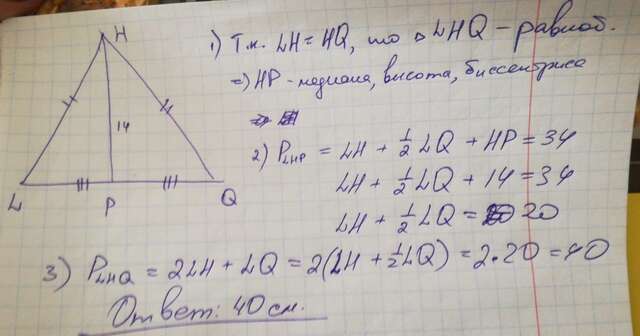 H
14
L
P
Q
1) Т.к. LH = HQ, то △ LHQ - равноб.
=> HP - медиана, высота, биссектриса
2) P LHP = LH + 1/2 LQ + HP = 34
LH + 1/2 LQ + 14 = 34
LH + 1/2 LQ = 20
3) P LHQ = 2LH + LQ = 2(LH + 1/2 LQ) = 2·20 = 40
Ответ: 40 см.